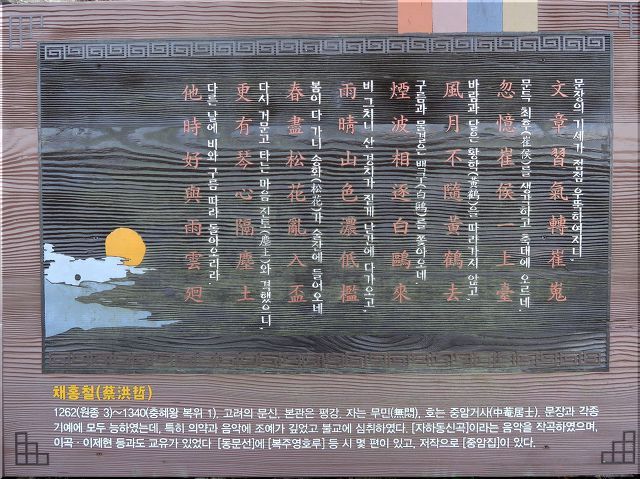 문장의 기세가 점점 우뚝하여지니,
文章習氣轉崔嵬
문득 최후(崔侯)를 생각하고 축대에 오르네.
忽憶崔侯一上臺
바람과 달은 황학(黃鶴)을 따라가지 않고,
風月不隨黃鶴去
구름과 물결은 백구(白鷗)를 쫓아오네.
煙波相逐白鷗來
비 그치니 산 경치가 짙게 난간에 다가오고,
雨晴山色濃低檻
봄이 다 가니 송화(松花)가 술잔에 들어오네
春盡松花亂入盃
다시 거문고 타는 마음 진토(塵土)와 격했으니,
更有琴心隔塵土
다른 날에 비와 구름 따라 돌아오리라.
他時好與雨雲廻
채홍철(蔡洪哲)
1262(원종 3)~1340(충혜왕 복위 1). 고려의 문신. 본관은 평강. 자는 무민(無悶), 호는 중암거사(中菴居士). 문장과 각종
기예에 모두 능하였는데, 특히 의약과 음악에 조예가 깊었고 불교에 심취하였다. [자하동신곡]이라는 음악을 작곡하였으며,
이곡·이제현 등과도 교유가 있었다 [동문선]에 [복주영호루] 등 시 몇 편이 있고, 저작으로 [중암집]이 있다.